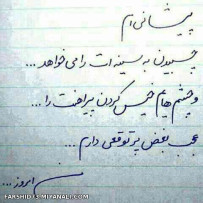 پیشانی ام
چسبیدن به سینه ات را می خواهد...
و چشم هایم خیس کردن پیراهنت را...
عجب بغض پرتوقعی دارم...
من امروز...
FARSHID73.MIYANALI.COM